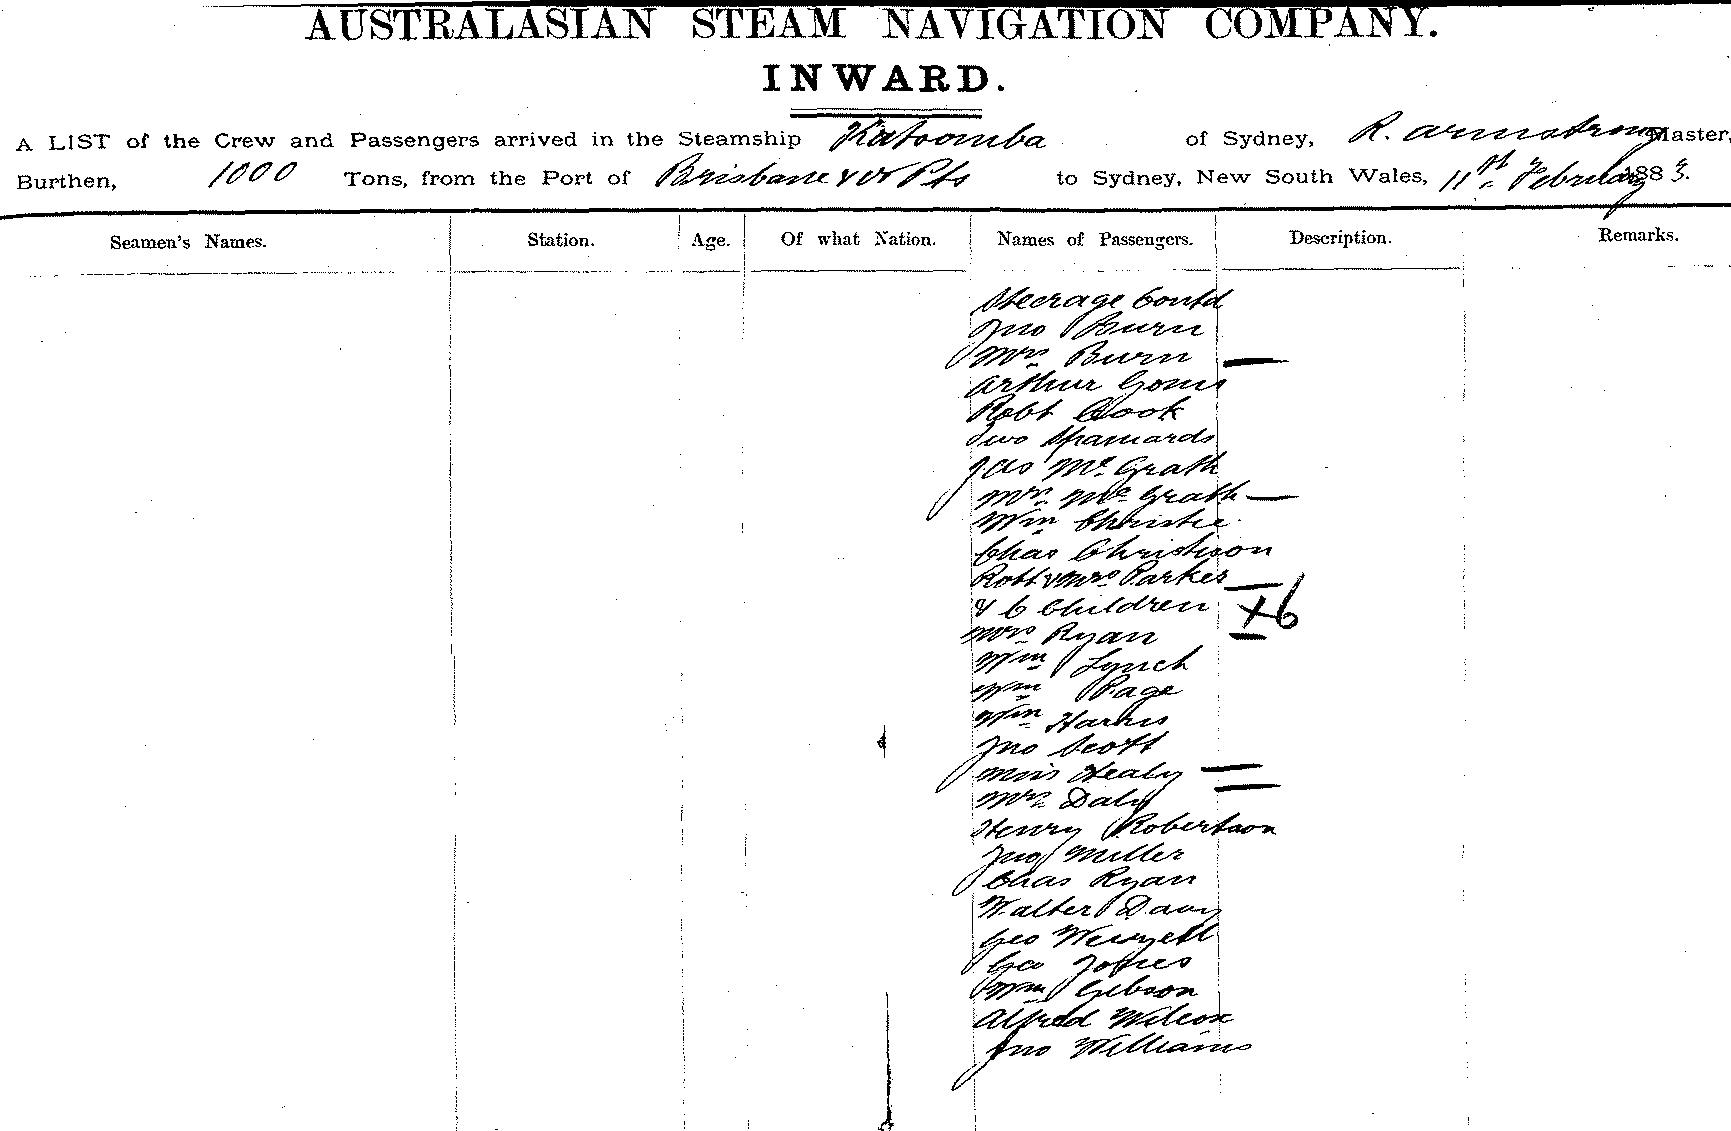 AUSTRALASIAN STEAM NAVIGATION COMPANY.
INWARD.
A LIST of the Crew and Passengers arrived in the Steamship Katoomba of Sydney, R. Armstrong Master,
Burthen, 1000 Tons, from the Port of Brisbane & Pts to Sydney, New South Wales, 11th February 1883.
Seamen's Names. Station. Age. Of what Nation. Names of Passengers. Description. Remarks.
Steerage Contd
Jno Burn
Mrs Burn —
Arthur
Robt Cook
Two Spaniards
Jas Mc Grath
Mrs Mc Grath —
Wm Christie
Chas Christison
Robt & Mrs Parker —
& 6 Children +6
Mrs Ryan —
Wm Lynch
Wm Page
Wm Harris
Jno Scott
Miss Healy —
Mrs Daly —
Henry Robertson
Jno Miller
Chas Ryan
Walter Davy
Geo
Geo Jones
Wm Gibson
Alfred Wilcox
Jno Williams